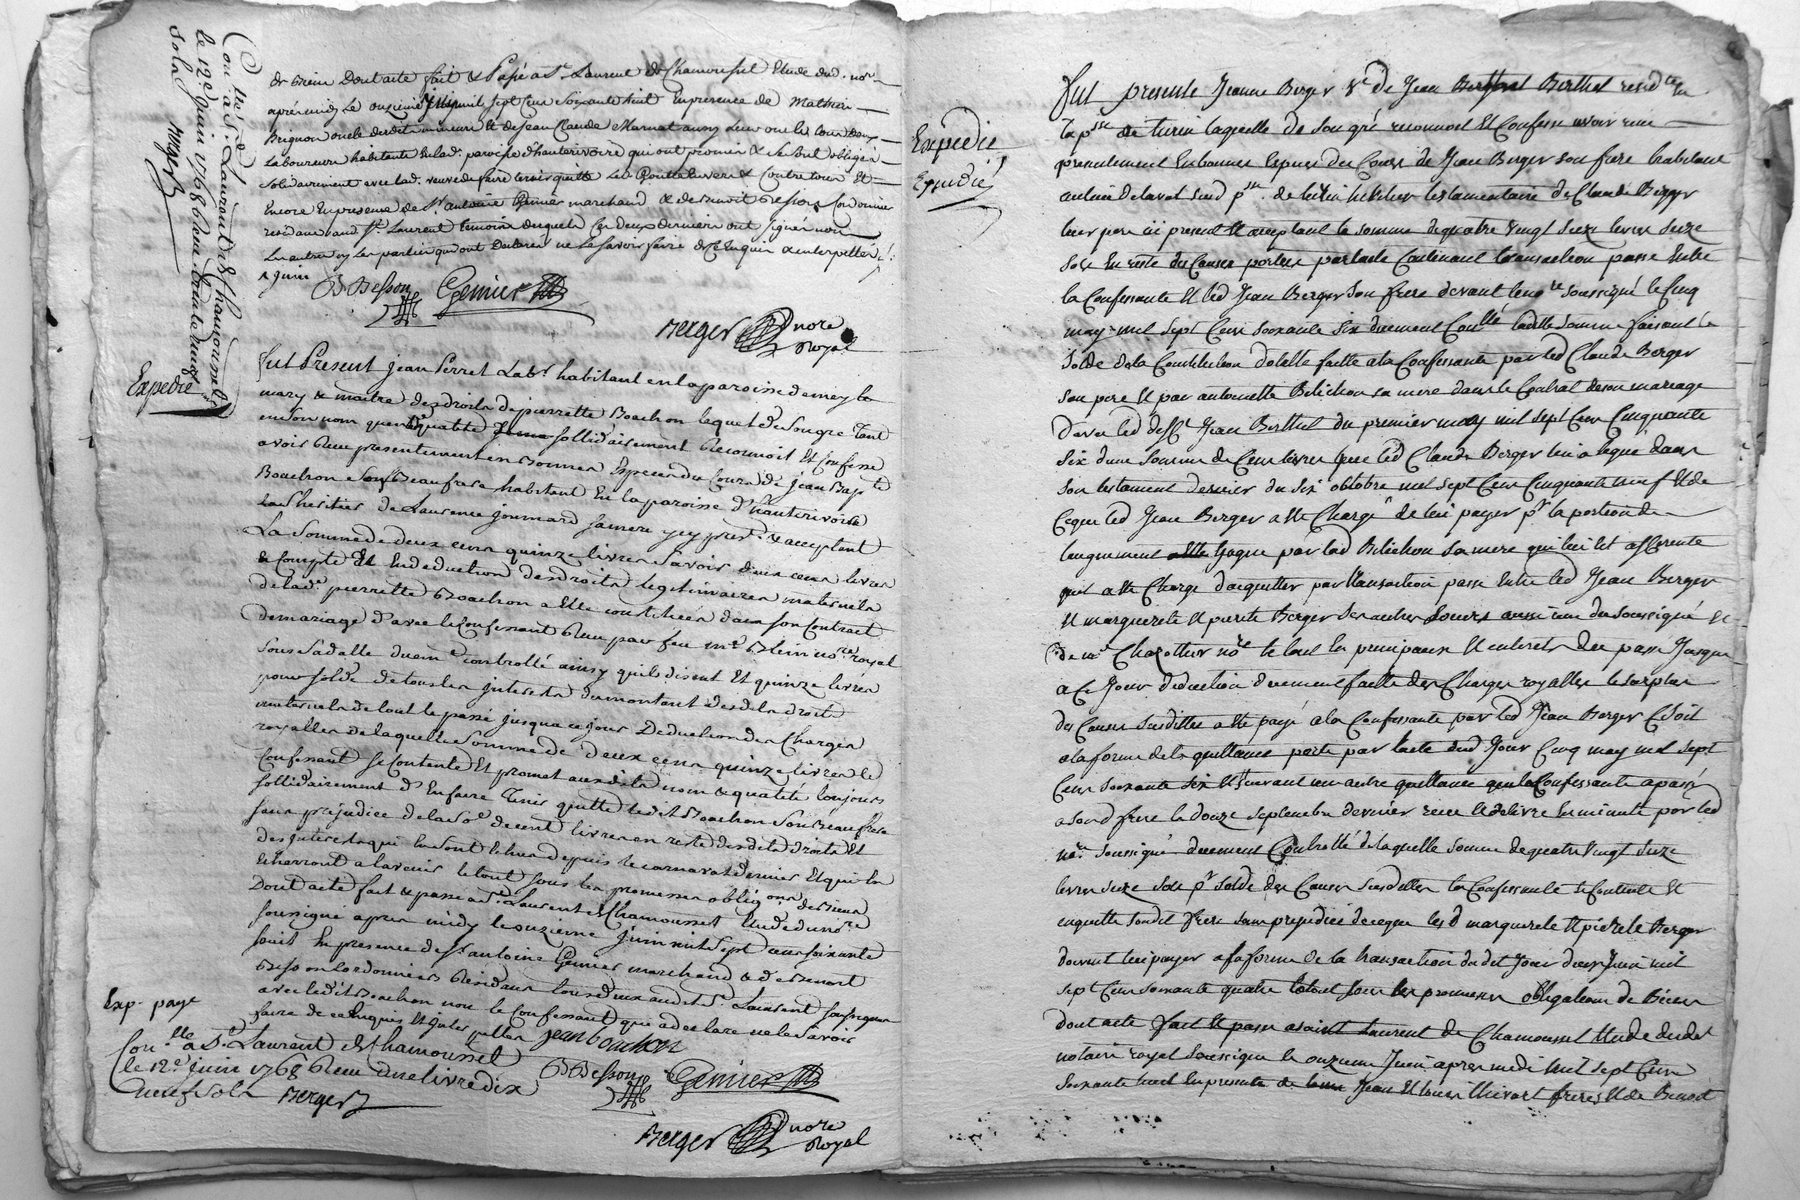 de bien Dont acte fait & Passé a St Laurent de Chamousset Etude dud. nore
apres midy Le onzieme Juin mil sept cent soixante huit En presence de Mathieu
Brignon oncle desdits mineurs et de jean Claude Marnat aussy leur oncle tous deux
Laboureurs habitants en lad. paroisse d'hauterivoire qui ont promis & se sont obligés
solidairement avec lad. veuve de faire tenir quitte led Envers & Contre tous Et
Encore En presence de Sr antoine Genier marchand & de Benoit Besson Cordonnier
residants aud St Laurent temoins desquels Ces deux derniers ont signés non
Les autres ny les parties qui ont Declarés ne le savoir faire de ce Enquis & interpellés
B Besson Genier
Berger nore Royal
Conlé a St Laurent de Chamousset
le 12e juin 1768 Reçu
sols Berger
Expedié
fut Present jean Perret Labr. habitant en la paroisse de meys
mary & maitre des droits de pierrette Bouchon lequel de son gré Tant
en son nom quen dte qualité sollidairement Reconnoit Et Confesse
avoir Reçu presentement en Bonnes Especes du Cours de Jean Bapte
Bouchon son Beaufrere habitant En la paroisse d'hauterivoire
heritier de Laurence joumard sa mere ycy prest. & acceptant
La Somme de deux cens quinze livres Savoir deux cens livres
a Compte Et En deduction des droits legitimaires maternels
de lad. pierrette Bouchon a Elle constitués dans son Contract
de mariage d'avec le Confessant Reçu par feu me Blein nore royal
sous sa datte duemt controllé ainsy quils disent Et quinze livres
pour solde de tous les jnterets du montant desdits droits
maternels de tout le passé jusqua ce jour Deduction des Charges
royalles de laquelle somme de deux cens quinze livres le
Confessant se Contente Et promet auxdits nom & qualité toujours
sollidairement d'En faire Tenir quitte ledit Bouchon son Beaufrere
sans prejudice de la soe de cent livres en reste desdits droits Et
des jnterets qui En sont Echus depuis le carnaval dernier Et qui En
Echerront a lavenir le tout sous les promesses obligons de Biens
Dont acte fait & passé a St Laurent de Chamousset Etude du nore
soussigné apres midy le onzieme juin mil sept cens soixante
huit En presence de Sr antoine Genier marchand & de Benoit
Besson Cordonnier Residans tous deux audit St Laurent soussignés
avec ledit Bouchon non le Confessant qui a declaré ne le Savoir
faire de ce Enquis Et jnterpellé jean bouchon
B Besson Genier
Exp. page
Conlle a St Laurent de Chamousset
le 12e juin 1768 Reçu une livre dix
neuf sols Berger
Berger nore Royal
Expedié
Expedié
Fut presente Jeanne Berger Ve de Jean Berthet residte en
la psse de turin laquelle de son gré reconnoit Et Confesse avoir reçu
presentement En bonnes Especes du Cours de Jean Berger son frere habitant
au lieu de lavat susd psse. heritier testamentaire de Claude Berger
leur pere ici present Et acceptant la somme de quatre vingt seize livres seize
sols En reste des Causes portées par lacte Contenant transaction passé Entre
la Confessante Et led Jean Berger son frere devant le nore soussigné le Cinq
may mil sept Cent soixante six duement Conllé ladite somme faisant le
solde de la Constitution dotalle faitte a la Confessante par led Claude Berger
son pere Et par antoinette Bilichon sa mere dans le Contrat de son mariage
d'avec led deft Jean Berthet du premier may mil sept Cent Cinquante
six dune somme de Cent livres que led Claude Berger lui a legué dans
son testament dernier du six octobre mil sept Cent Cinquante neuf Et de
ce que led Jean Berger a été Chargé de lui payer pr la portion de
laugment gagné par lad Bilichon sa mere qui lui Est afferente
quil a été Chargé dacquitter par transaction passé Entre led Jean Berger
Et marguerite Et pierrete Berger ses autres soeurs aussi reçu du soussigné Et
de me Chazottier nore le tout En principaux Et interets du passé Jusqua
a Ce Jour deduction duement faitte des Charges royalles le surplus
des Causes susdittes a été payé a la Confessante par led Jean Berger soit
a la forme de la quittance porté par lacte dud Jour Cinq may mil sept
Cent soixante six Et suivant une autre quittance que la Confessante a passé
a sond frere le douze septembre dernier reçue En minute par led
nore soussigné duement Controllé de laquelle somme de quatre vingt seize
livres seize sols pr solde des Causes susdittes la Confessante se Contente Et
en quitte sondit frere sans prejudice de ce que lesd marguerite Et pierete Berger
doivent lui payer a la forme de la transaction dudit Jour deux Juin mil
sept Cent soixante quatre le tout sous les promesses obligations de Biens
dont acte fait Et passé a saint Laurent de Chamousset Etude dudit
notaire royal soussigné le onzieme Juin apres midi mil sept Cent
soixante huit En presence de Jean Et louis frères Et de Benoit